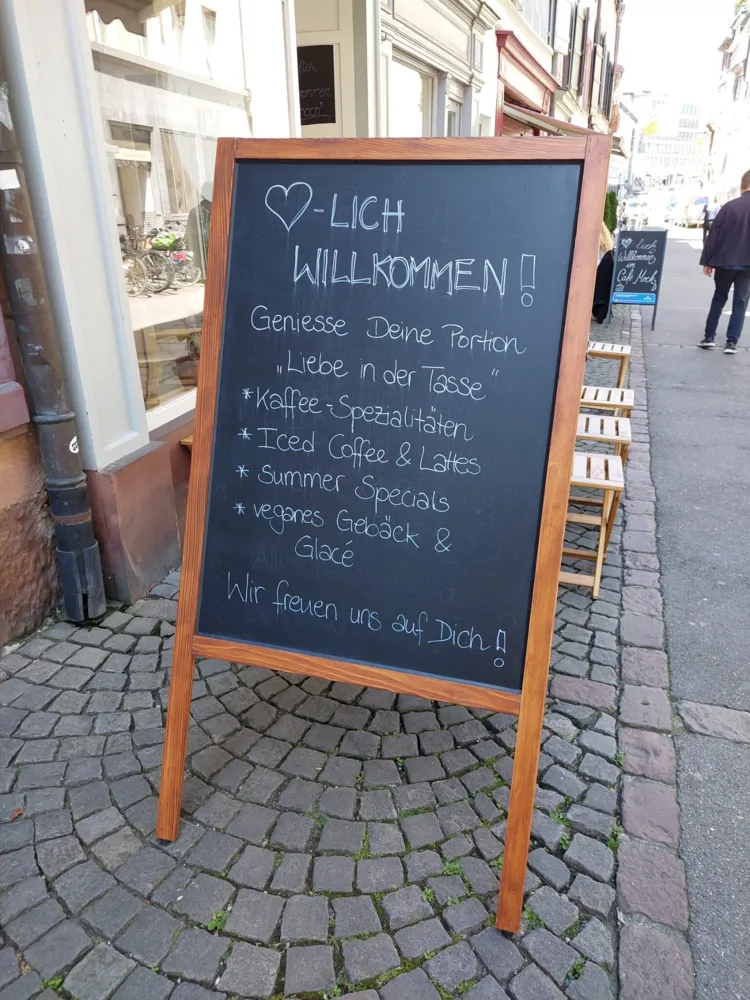 ♡-LICH
WILLKOMMEN!
Geniesse Deine Portion
„Liebe in der Tasse"
*Kaffee-Spezialitäten
* Iced Coffee & Lattes
* Summer Specials
* veganes Gebäck &
Glacé
Wir freuen uns auf Dich!
♡-lich
Willkommen
im
Café Mock